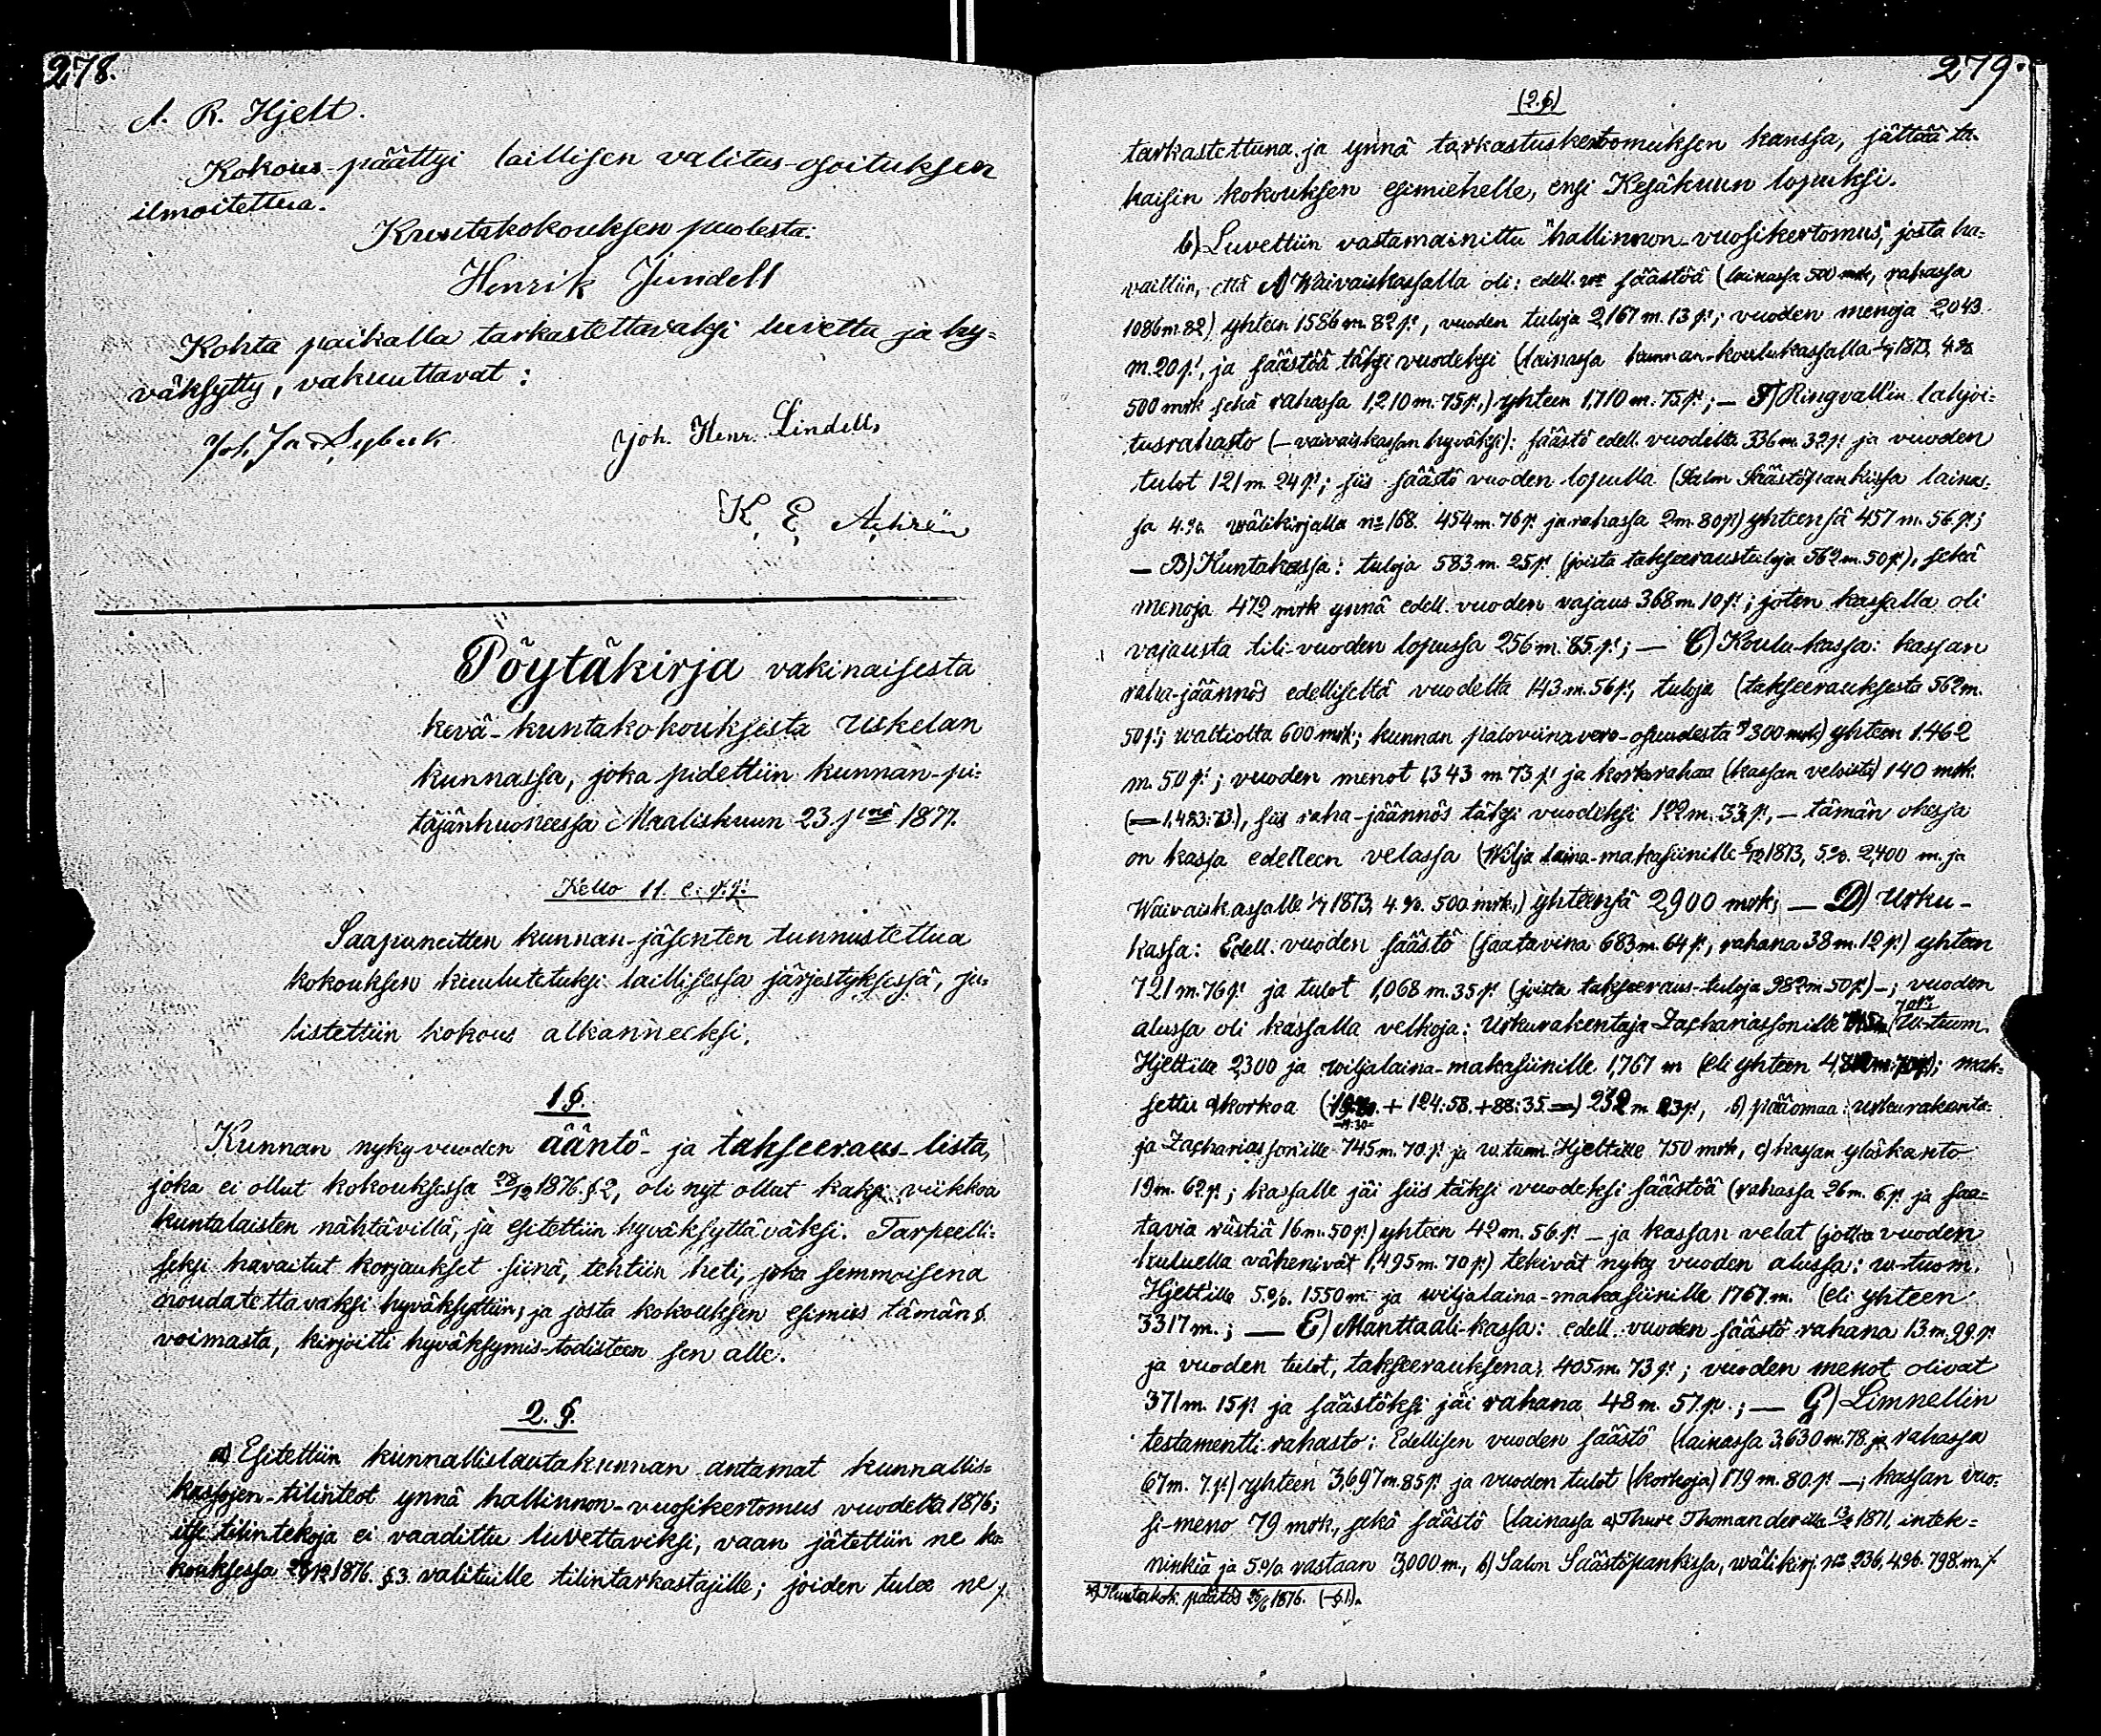 278.
A. R. Hjelt.
Kokous päättyi laillisen valitus-osoituksen
ilmoitettua.
Kuntakokouksen puolesta:
Henrik Jundell
Kohta paikalla tarkastettavaksi luvettu ja hy-
väksytty, vakuuttavat:
Joh. Henr. Lindell,
K. E. Achrén
Pöytäkirja vakinaisesta
kevä-kuntakokouksesta Uskelan
kunnassa, joka pidettiin kunnan-pi-
täjänhuoneessa Maaliskuun 23. pnä 1877.
Kello 11. e. p.p.
Saapuneitten kunnan-jäsenten tunnustettua
kokouksen kuulutetuksi laillisessa järjestyksessä, ju-
listettiin kokous alkanneeksi.
1 §.
Kunnan nyky-vuoden ääntö- ja takseeraus-lista,
joka ei ollut kokouksessa 28/12 1876. § 2, oli nyt ollut kaksi viikkoa
kuntalaisten nähtävillä, ja esitettiin hyväksyttäväksi. Tarpeelli-
seksi havaitut korjaukset siinä, tehtiin heti, joka semmoisena
noudatettavaksi hyväksyttiin; ja josta kokouksen esimies tämän §
voimasta, kirjoitti hyväksymis-todisteen sen alle.
2. §.
a) Esitettiin kunnallislautakunnan antamat kunnallis-
kassojen-tilinteot ynnä hallinnon-vuosikertomus vuodelta 1876;
itse tilintekoja ei vaadittu luvettaviksi, vaan jätettiin ne ko-
kouksessa 28/12 1876. § 3. valituille tilintarkastajille; joiden tulee ne
279.
(2. §)
tarkastettuna ja ynnä tarkastuskertomuksen kanssa, jättää ta-
kaisin kokouksen esimiehelle, ensi Kesäkuun lopuksi.
b) Luvettiin vastamainittu "hallinnon-vuosikertomus," josta ha-
vaittiin, että A) Waivaiskassalla oli: edell. säästöä (lainassa 500 mrk, rahassa
1086 m. 82) yhteen 1586 m. 82 p:, vuoden tuloja 2,167 m. 13 p:; vuoden menoja 2,043.
m. 20 p:, ja säästöä täksi vuodeksi (lainassa kunnan-koulukassalla 1/7 1873, 4.%
500 mrk sekä rahassa 1,210 m. 75 p.,) yhteen 1,710 m. 75 p:; — F) Ringvallin lahjoi-
tusrahasto (– vaivaiskassan hyväksi): säästö edell. vuodelta 336 m. 32 p: ja vuoden
tulot 121 m. 24 p:; siis säästö vuoden lopulla (Salon Säästöpankissa lainas-
sa 4.% wälikirjalla no 168. 454 m. 76 p: ja rahassa 2 m. 80 p) yhteensä 457 m. 56 p:;
— B) Kuntakassa: tuloja 583 m. 25 p: (joista takseeraustuloja 562 m. 50 p:), sekä
menoja 472 mrk ynnä edell. vuoden vajaus 368 m. 10 p:; joten kassalla oli
vajausta tili-vuoden lopussa 256 m. 85. p:; — C) Koulu-kassa: kassan
raha-jäännös edelliseltä vuodelta 143 m. 56 p:, tuloja (takseerauksesta 562 m.
50 p:; waltiolta 600 mrk; kunnan paloviinavero-osuudesta *) 300 mrk) yhteen 1.462
m. 50 p:; vuoden menot 1,343 m 73 p: ja korkorahaa (kassan veloista) 140 mrk.
(= 1.483:73.), siis raha-jäännös täksi vuodeksi 122 m. 33 p:, — tämän ohessa
on kassa edelleen velassa (Wilja laina-makasiinille 6/12 1873, 5.%. 2,400 m. ja
Waivaiskassalle 1/7 1873, 4.%. 500 mrk.,) yhteensä 2,900 mrk; — D) Urku-
kassa: Edell. vuoden säästö (saatavina 683 m. 64 p:, rahana 38 m. 12 p:) yhteen
721 m. 76 p: ja tulot 1,068 m. 35 p: (joista takseeraus-tuloja 982 m 50 p:) –; vuoden
alussa oli kassalla velkoja: Urkurakentaja Zachariassonille U.-tuom.
Hjeltille 2,300 ja wiljalaina-makasiinille 1,767 m (eli yhteen); mak-
settu a) korkoa (+ 124:58. + 88:35 =) 232 m. 23 p:, b) pääomaa: urkurakenta-
ja Zachariassonille 745 m. 70. p: ja u. tuom. Hjeltille 750 mrk, c) kassan yläskanto
19 m. 62 p:; kassalle jäi siis täksi vuodeksi säästöä (rahassa 26 m. 6. p: ja saa-
tavia rästiä 16 m. 50 p:) yhteen 42 m. 56. p: – ja kassan velat (jotka vuoden
kuluella vähenivät 1,495 m. 70 p:) tekivät nyky vuoden alussa: u.-tuom.
Hjeltille 5.%. 1550 m. ja wiljalaina-makasiinille 1767. m. (eli yhteen
3317 m.; — E) Manttaali-kassa: edell. vuoden säästö rahana 13 m. 99. p:
ja vuoden tulot, takseerauksena, 405 m. 73 p:; vuoden menot olivat
371 m. 15 p: ja säästöksi jäi rahana 48 m. 57. p.; — G) Limnellin
testamentti-rahasto: Edellisen vuoden säästö (lainassa 3,630 m. 78. ja rahassa
67 m. 7. p:) yhteen 3,697 m. 85 p: ja vuoden tulot (korkoja) 179 m. 80. p: –; kassan vuo-
si-meno 79 mrk., sekä säästö (lainassa a) Thure Thomanderilla 1871, intek-
ninkiä ja 5.% vastaan 3,000 m., b) Salon Säästöpankissa, wälikirj. no 236, 4.%. 798. m.
*) Kuntakok: päätös 26/6 1876. (– § 1).